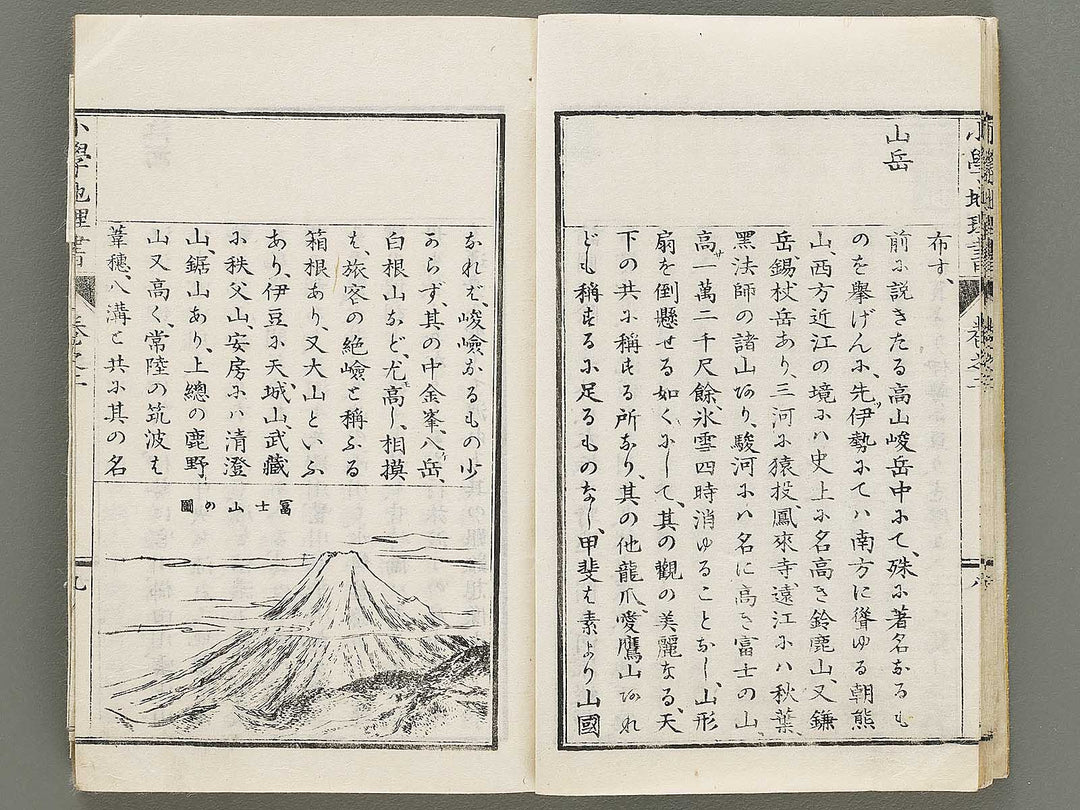 小學地理書
卷之二
八
山岳
布す、
前に説きたる高山峻岳中にて、殊に著名なるも
のを擧げんに、先伊勢にてハ南方に聳ゆる朝熊
山、西方近江の境にハ史上に名高き鈴鹿山、又鎌
岳、錫杖岳あり、三河に猿投、鳳來寺、遠江にハ秋葉、
黑法師の諸山あり、駿河にハ名に高き富士の山、
高サ一萬二千尺餘、氷雪四時消ゆることなし、山形
扇を倒懸せる如くにして、其の觀の美麗なる、天
下の共に稱する所なり、其の他龍爪、愛鷹山あれ
ども稱するに足るものなし、甲斐は素より山國
なれば、峻嶮なるもの少
からず、其の中金峯、八ヶ岳、
白根山など尤高し、相摸
は、旅客の絶嶮と稱ふる
箱根あり、又大山といふ
あり、伊豆に天城山、武藏
に秩父山、安房にハ清澄
山、鋸山あり、上總の鹿野
山又高く、常陸の筑波は
葦穗、八溝と共に其の名
冨士山の圖
小學地理書
卷之二
九